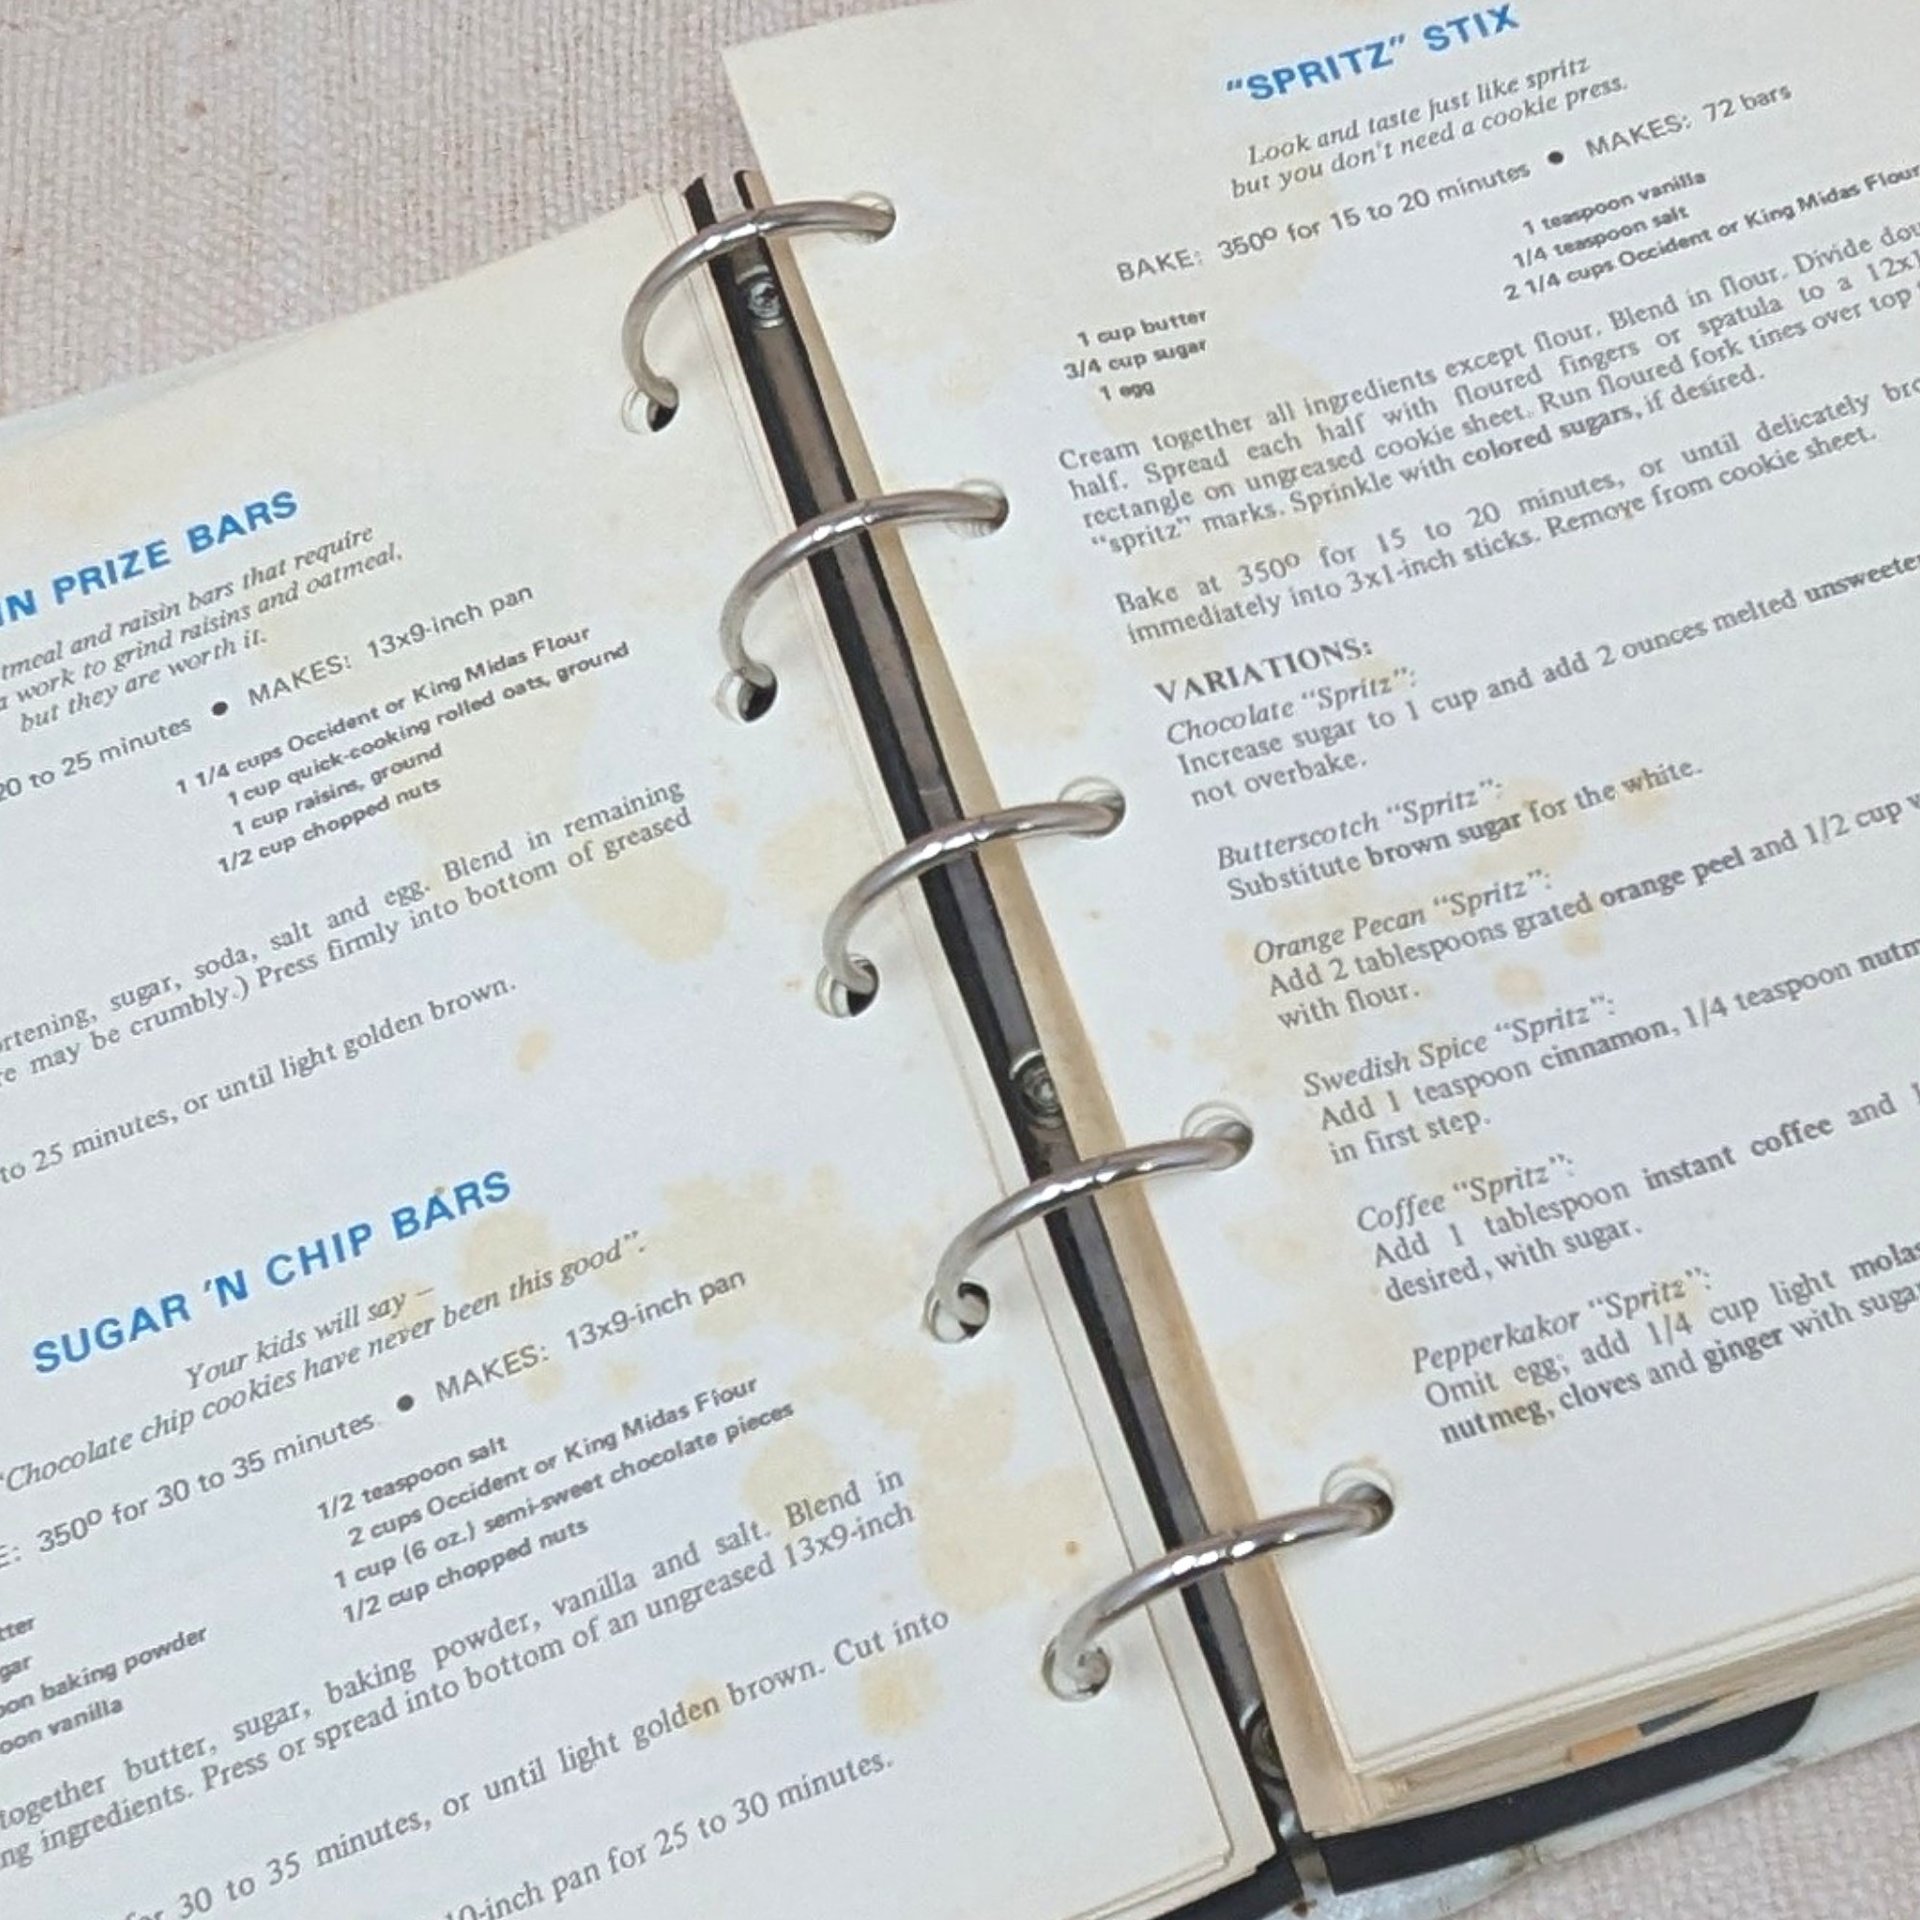 IN PRIZE BARS
meal and raisin bars that require
work to grind raisins and oatmeal,
but they are worth it.
20 to 25 minutes ● MAKES: 13x9-inch pan
1 1/4 cups Occident or King Midas Flour
1 cup quick-cooking rolled oats, ground
1 cup raisins, ground
1/2 cup chopped nuts
sugar, soda, salt and egg. Blend in remaining
may be crumbly.) Press firmly into bottom of greased
to 25 minutes, or until light golden brown.
SUGAR 'N CHIP BARS
Your kids will say –
“Chocolate chip cookies have never been this good”.
350º for 30 to 35 minutes ● MAKES: 13x9-inch pan
baking powder
vanilla
1/2 teaspoon salt
2 cups Occident or King Midas Flour
1 cup (6 oz.) semi-sweet chocolate pieces
1/2 cup chopped nuts
together butter, sugar, baking powder, vanilla and salt. Blend in
ingredients. Press or spread into bottom of an ungreased 13x9-inch
30 to 35 minutes, or until light golden brown. Cut into
10-inch pan for 25 to 30 minutes.
“SPRITZ” STIX
Look and taste just like spritz
but you don't need a cookie press.
BAKE: 350º for 15 to 20 minutes ● MAKES: 72 bars
1 cup butter
3/4 cup sugar
1 egg
1 teaspoon vanilla
1/4 teaspoon salt
2 1/4 cups Occident or King Midas Flour
Cream together all ingredients except flour. Blend in flour. Divide
half. Spread each half with floured fingers or spatula to a
rectangle on ungreased cookie sheet. Run floured fork tines over top
“spritz” marks. Sprinkle with colored sugars, if desired.
Bake at 350º for 15 to 20 minutes, or until delicately
immediately into 3x1-inch sticks. Remove from cookie sheet.
VARIATIONS:
Chocolate “Spritz”:
Increase sugar to 1 cup and add 2 ounces melted
not overbake.
Butterscotch “Spritz”:
Substitute brown sugar for the white.
Orange Pecan “Spritz”:
Add 2 tablespoons grated orange peel and 1/2 cup
with flour.
Swedish Spice “Spritz”:
Add 1 teaspoon cinnamon, 1/4 teaspoon
in first step.
Coffee “Spritz”:
Add 1 tablespoon instant coffee and
desired, with sugar.
Pepperkakor “Spritz”:
Omit egg; add 1/4 cup light
nutmeg, cloves and ginger with